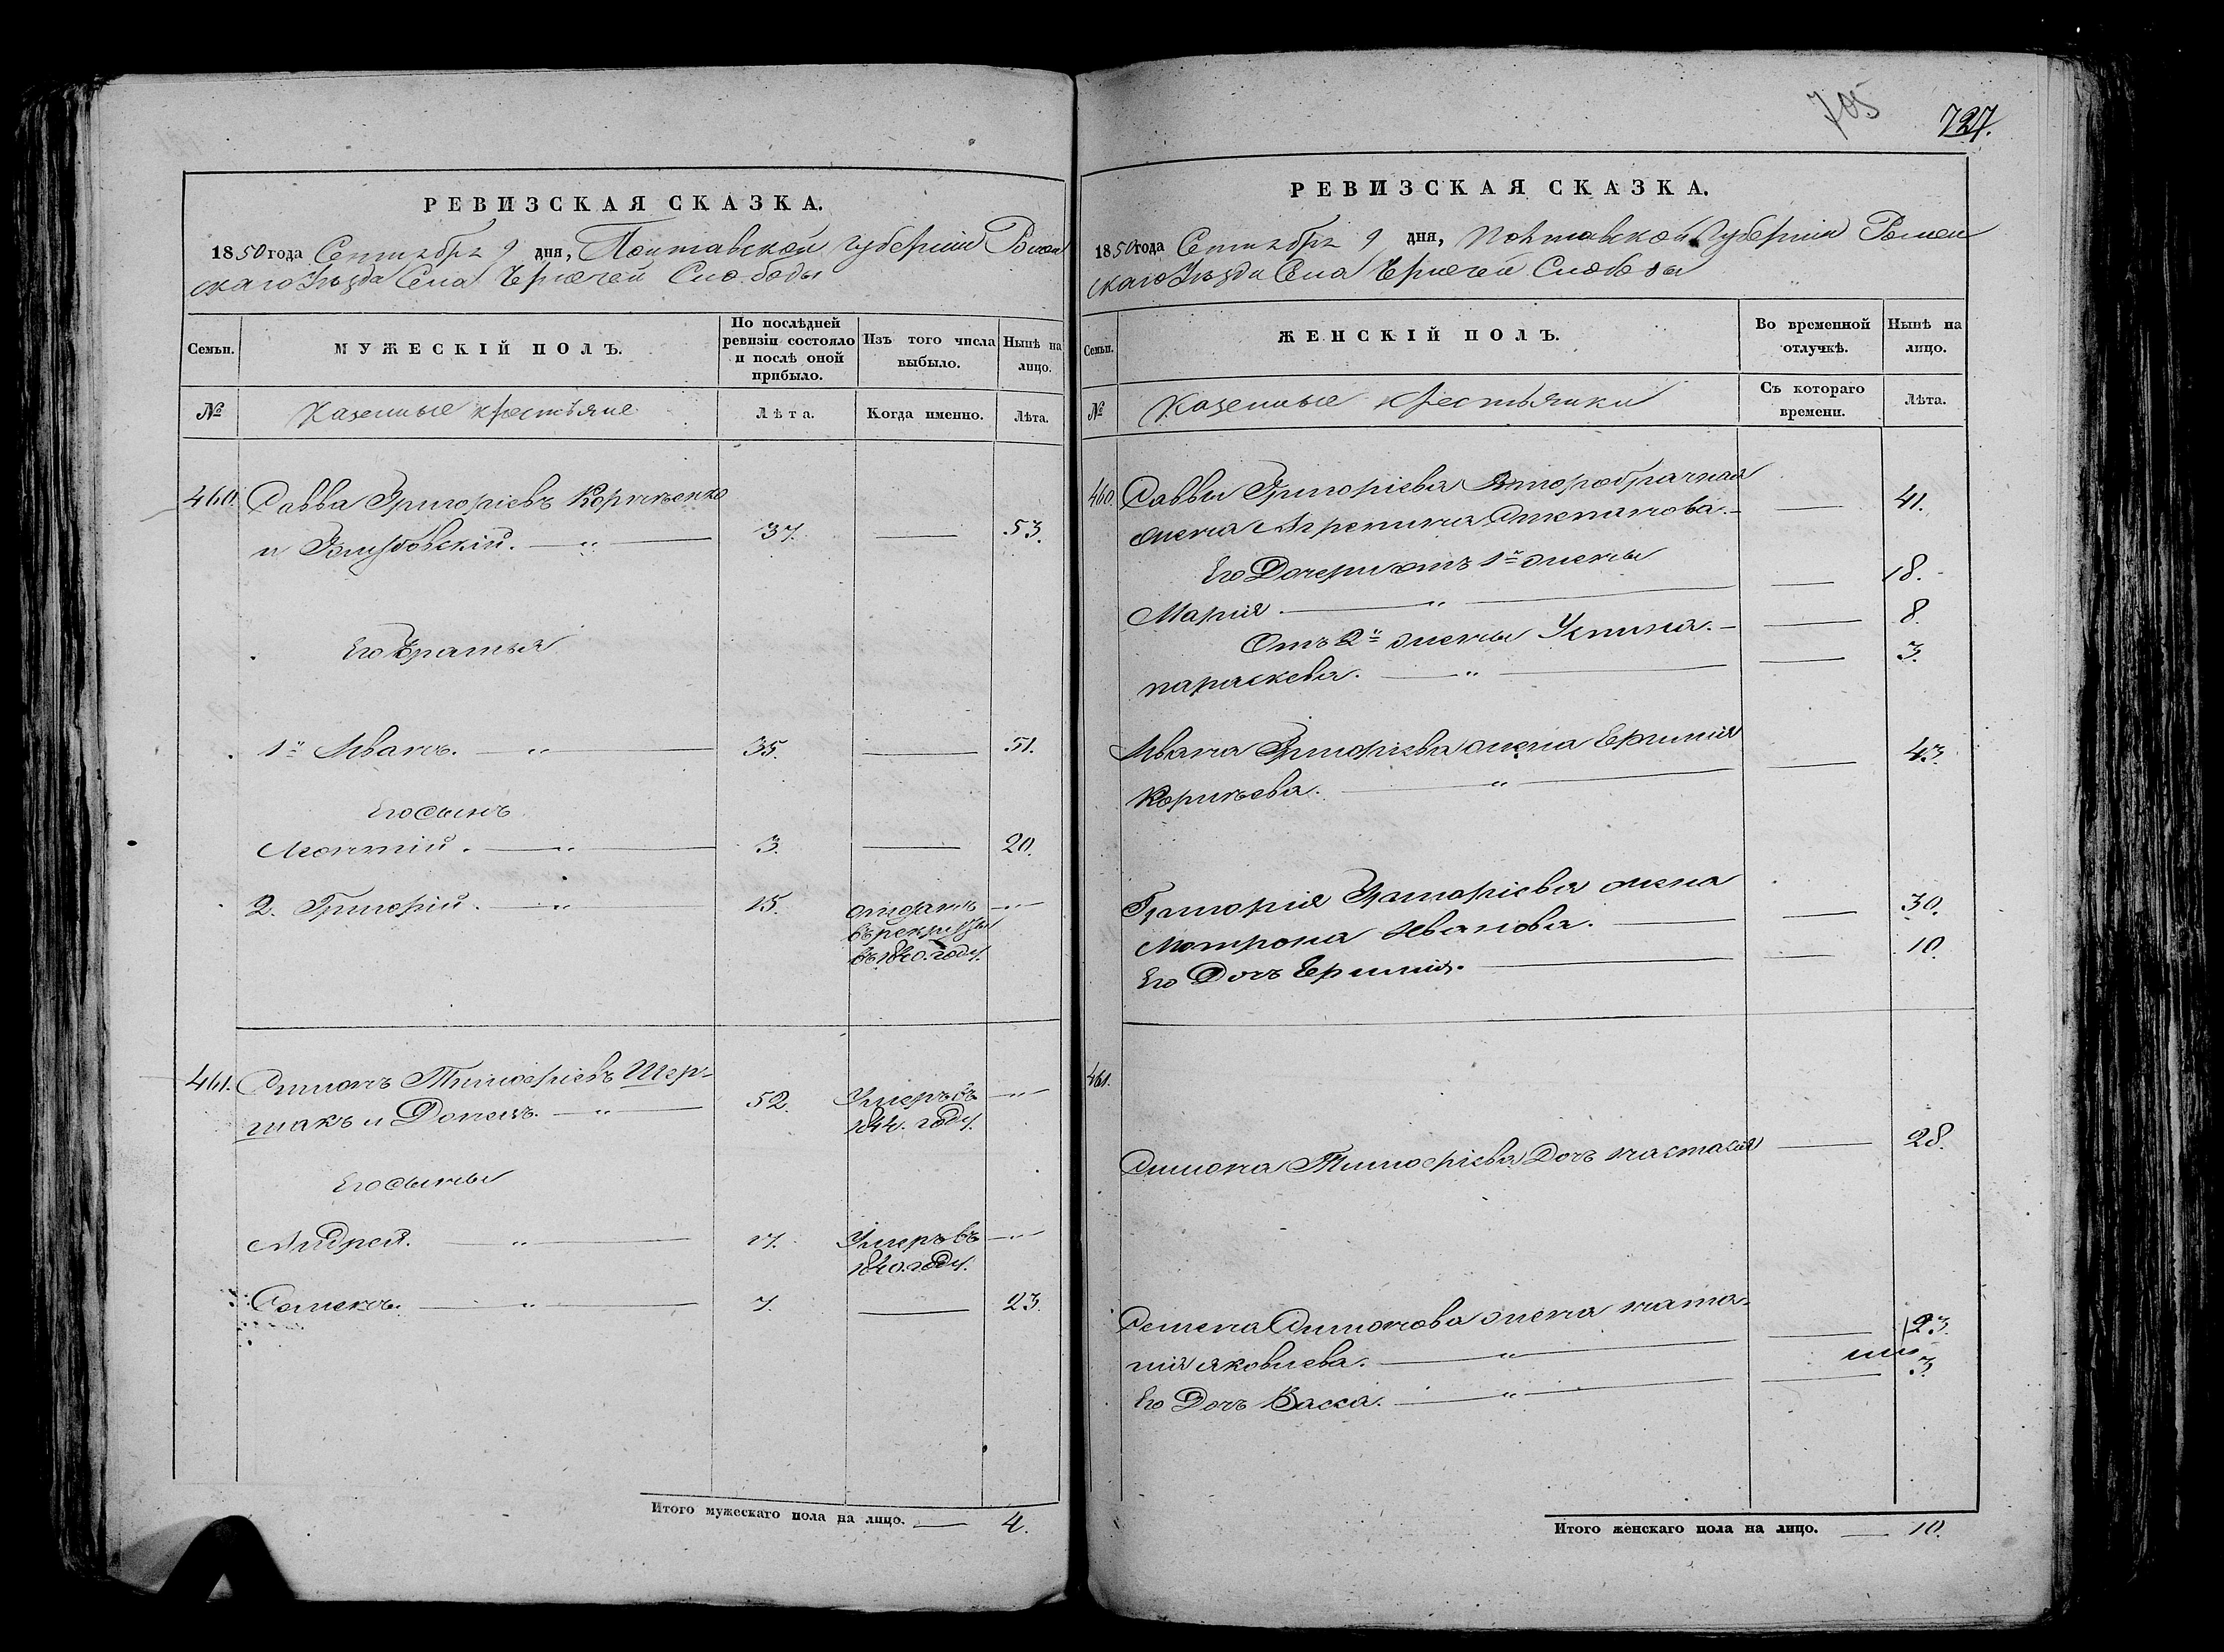 РЕВИЗСКАЯ СКАЗКА.
1850 года Сентября 9 дня, Полтавской Губернии Ромен
скаго Уѣзда Села Чернечей Слободы
Семьи.
МУЖЕСКІЙ ПОЛЪ.
По послѣдней ревизіи состояло и послѣ оной прибыло.
Изъ того числа выбыло.
Нынѣ на лицо.
№
Казенные крестьяне
Лѣта.
Когда именно.
Лѣта.
460. Савва Григоріевъ
и 37. 53.
Его Братья
1й Иванъ. 35. 51.
Его сынъ
Леонтій. 3. 20.
2. Григорій. 15. отданъ
въ рекруты
въ 1840. году.
461. Симонъ Тимофѣевъ Шер-
шакъ и Донецъ. 52. Умеръ въ
1844. году.
Его сыны
Андрей. 17. Умеръ въ
1840. году.
Семенъ. 7. 23.
Итого мужескаго пола на лицо. 4.
705
727.
РЕВИЗСКАЯ СКАЗКА.
1850 года Сентября 9 дня, Полтавской Губерніи Ромен
скаго Уѣзда Села Чернечей Слободы
Семьи.
ЖЕНСКІЙ ПОЛЪ.
Во временной отлучкѣ.
Нынѣ на лицо.
№
Казенные крестьянки
Съ котораго времени.
Лѣта.
460. Саввы Григоріева Второбрачная
жена Агрепина Степанова. 41.
Его Дочери отъ 1й жены
Марія. 18.
Отъ 2й жены Устина. 8.
параскева. 3.
Ивана Григоріева жена Ефимія
Корнѣева. 43.
Григорія Григоріева жена
Мотрона Иванова. 30.
Его Дочь Ефимія. 10.
461.
Симона Тимофѣева Дочь настасія 28.
Семена Симонова жена ната-
лія яковлева. 23.
Его Дочь Васса. 3.
Итого женскаго пола на лицо. 10.